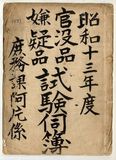 昭和十三年度
官没品
嫌疑品
試験伺簿
庶務課阿片係